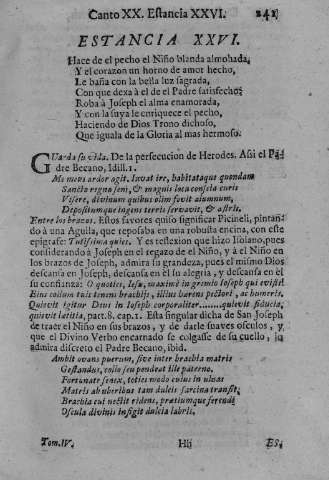 Canto XX. Estancia XXVI. 241
ESTANCIA XXVI.
Hace de el pecho el Niño blanda almohada,
Y el corazon un horno de amor hecho,
Le baña con la bella luz sagrada,
Con que dexa à el de el Padre satisfecho:
Roba à Joseph el alma enamorada,
Y con la suya le enriquece el pecho,
Haciendo de Dios Trono dichoso,
Que iguala de la Gloria al mas hermoso.
Guarda su vida. De la persecucion de Herodes. Assi el Pa-
dre Becano, Idill. 1.
Me meus ardor agit, iuvat ire, habitataque quondam
Sancto regno seni, & magnis loca conscia curis
Visere, divinum quibus olim fovit alumnum,
Depositumque ingens terris servavit, & astris.
Entre los brazos. Estos favores quiso significar Picineli, pintan-
do à una Aguila, que reposaba en una robusta encina, con este
epigrafe: Tutissima quies. Y es reflexion que hizo Isolano, pues
considerando à Joseph en el regazo de el Niño, y à el Niño en
los brazos de Joseph, admira su grandeza, pues el mismo Dios
descansa en Joseph, descansa en el su alegria, y descansa en el
su confianza: O quoties, Iesu, maximè in gremio Ioseph qui evisti!
Eius collum tuis tenens brachijs, illius barens pectori, ac humeris.
Quievit igitur Deus in Ioseph corporaliter.......quievit fiducia,
quievit latitia, part. 8. cap. 1. Esta singular dicha de San Joseph
de traer el Niño en sus brazos, y de darle suaves osculos, y
que el Divino Verbo encarnado se colgasse de su cuello, la
admira discreto el Padre Becano, ibid.
Ambit ovans puerum, sive inter brachia matris
Gestandus, collo seu pendeat ille paterno.
Fortunate senex, toties modo cuius in ulnas
Matris ab uberibus tam dulcis sarcina transit,
Brachia cui nectit ridens, pretiumque ferendi
Oscula divinis infigit dulcia labris.
Tom. IV. Hh ES-